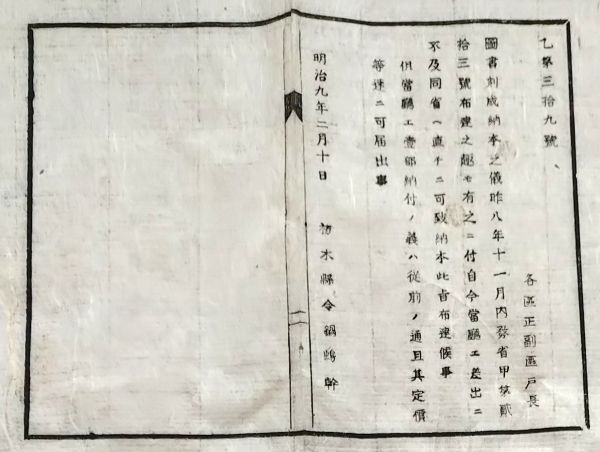 乙第三拾九號
各區正副區戸長
圖書刻成納本之儀昨八年十一月内務省甲第貳
拾三號布達之趣モ有之ニ付自今當廳エ差出ニ
不及同省ヘ直チニ可致納本此旨布達候事
但當廳エ壹部納付ノ義ハ從前ノ通且其定價
等速ニ可届出事
明治九年二月十日
栃木縣令鍋島幹
二